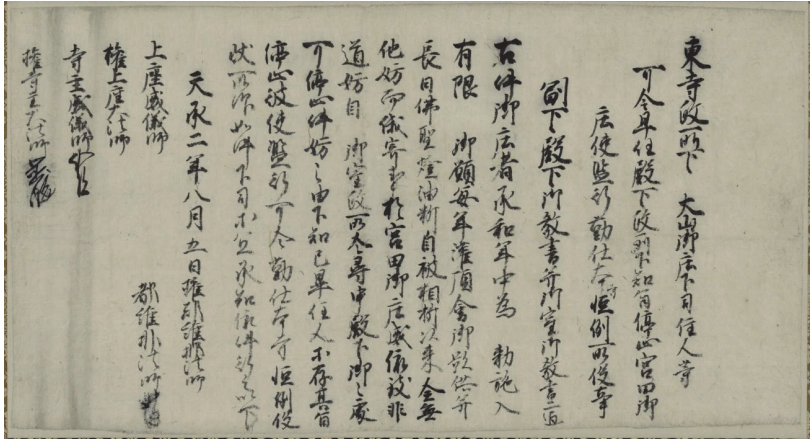 東寺政所下 大山御庄下司住人等
可令早任殿下政所下知旨停止宮田御
庄使濫行勤仕本寺恒例所役事
副下殿下御教書并御室御教書二通
右件御庄者承和年中為 勅施入
有限 御願毎年灌頂会御影供并
長日佛聖燈油断自被相折以来全無
他妨而俄寄事於宮田御庄威依致非
道妨自 御室政所令尋申殿下御之處
可停止件妨之由下知已畢住人等存其旨
停止彼使濫行可令勤仕本寺恒例役
状所仰如件下司等宜承知依件行之以下
天承二年八月五日權都維那法師
都維那法師
上座威儀師
權上座大法師
寺主威儀師
權寺主大法師